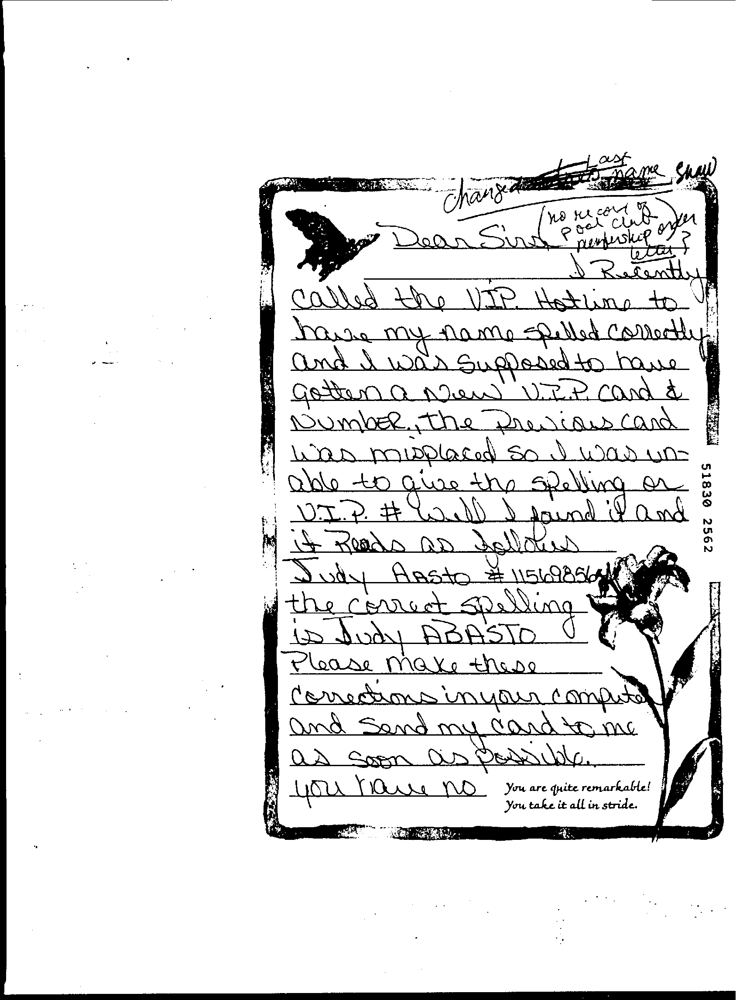 Last
changed name Snaw
(no record of
pool club
membership order
letter?
Dear Sirs,
I Recently
called the V.I.P. Hotline to
have my name spelled correctly
and I was supposed to have
gotten a new V.I.P. card &
NumbER, the Previous card
was misplaced so I was un=
able to give the spelling or
V.I.P. # Well I found it and
it Reads as follows
Judy AASTO #
the correct spelling
is Judy ABASTO
Please make these
corrections in your computer
and send my card to me
as soon as possible.
you have no
You are quite remarkable!
You take it all in stride.
51830 2562